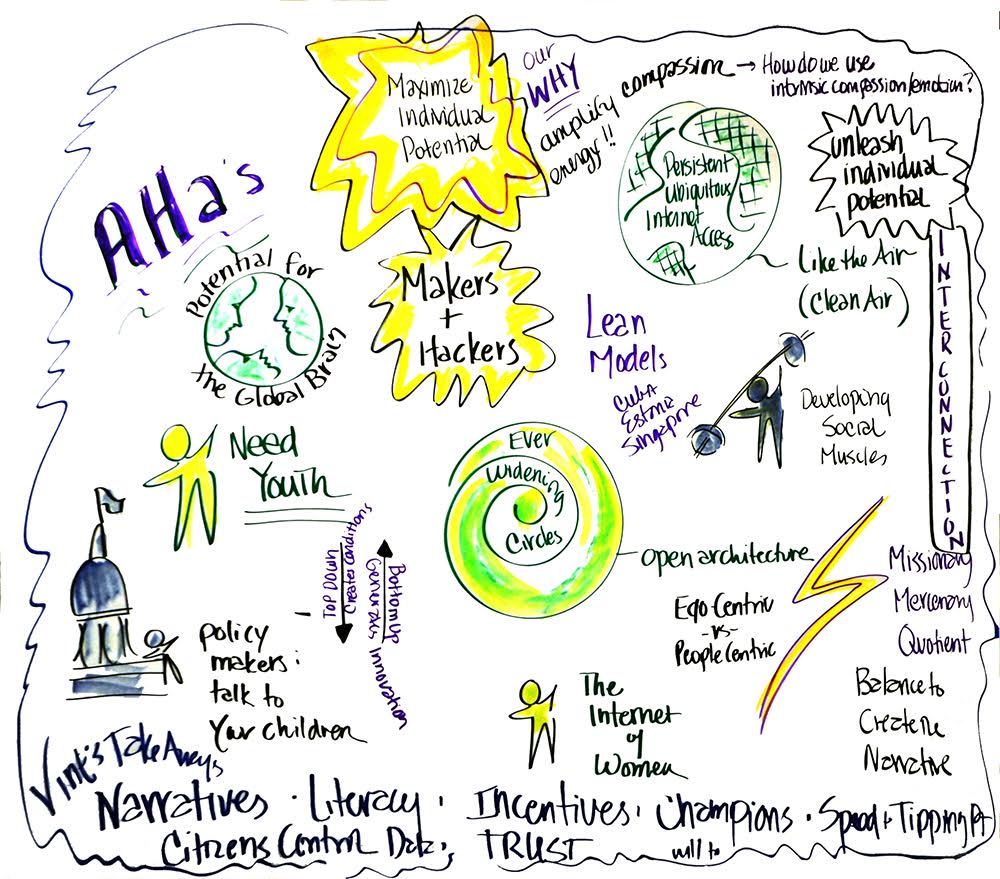 AHa's
Maximize
Individual
Potential
our
WHY
amplify
energy!!
compassion → How do we use
intrinsic compassion/emotion?
Persistent
ubiquitous
Internet
Access
unleash
individual
potential
Like the Air
(Clean Air)
INTERCONNECTION
Potential for
the Global Brain
Makers
+
Hackers
Lean
Models
Cuba
Estonia
Singapore
Developing
Social
Muscles
Need
Youth
Ever
Widening
Circles
open architecture
Ego Centric
-vs-
People Centric
Missionary
Mercenary
Quotient
Balance to
Create the
Narrative
TOP DOWN
Creates Conditions
Bottom Up
Generates Innovation
policy
makers:
talk to
Your children
The
Internet
of
Women
Vint's Take Aways
Narratives · Literacy · Incentives · Champions · Speed + Tipping Pt
Citizens Control Data, TRUST will to